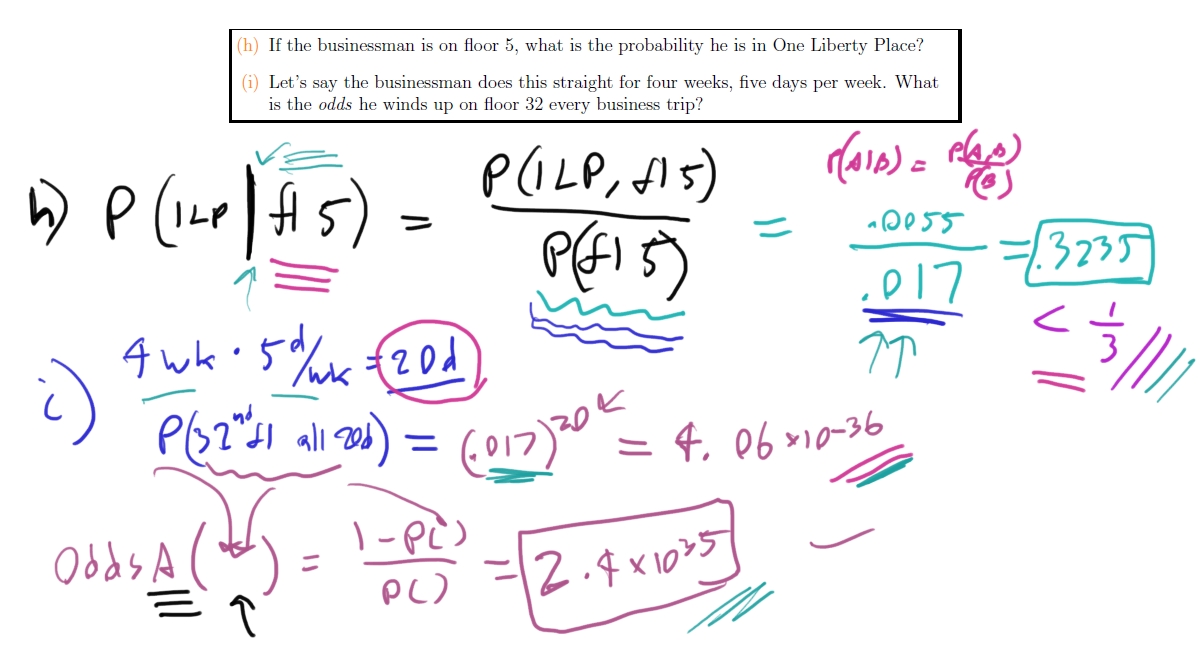 (h) If the businessman is on floor 5, what is the probability he is in One Liberty Place?
(i) Let's say the businessman does this straight for four weeks, five days per week. What
is the odds he winds up on floor 32 every business trip?
h) P(1LP | fl 5) = P(1LP, fl 5) / P(fl 5) = .0055 / .017 = .3235
P(A|B) = P(A,B) / P(B)
< 1/3
i) 4 wk · 5 d/wk = 20d
P(32nd fl all 20d) = (.017)^20 = 4.06 × 10^-36
Odds A ( ) = 1-P() / P() = 2.4 × 10^35